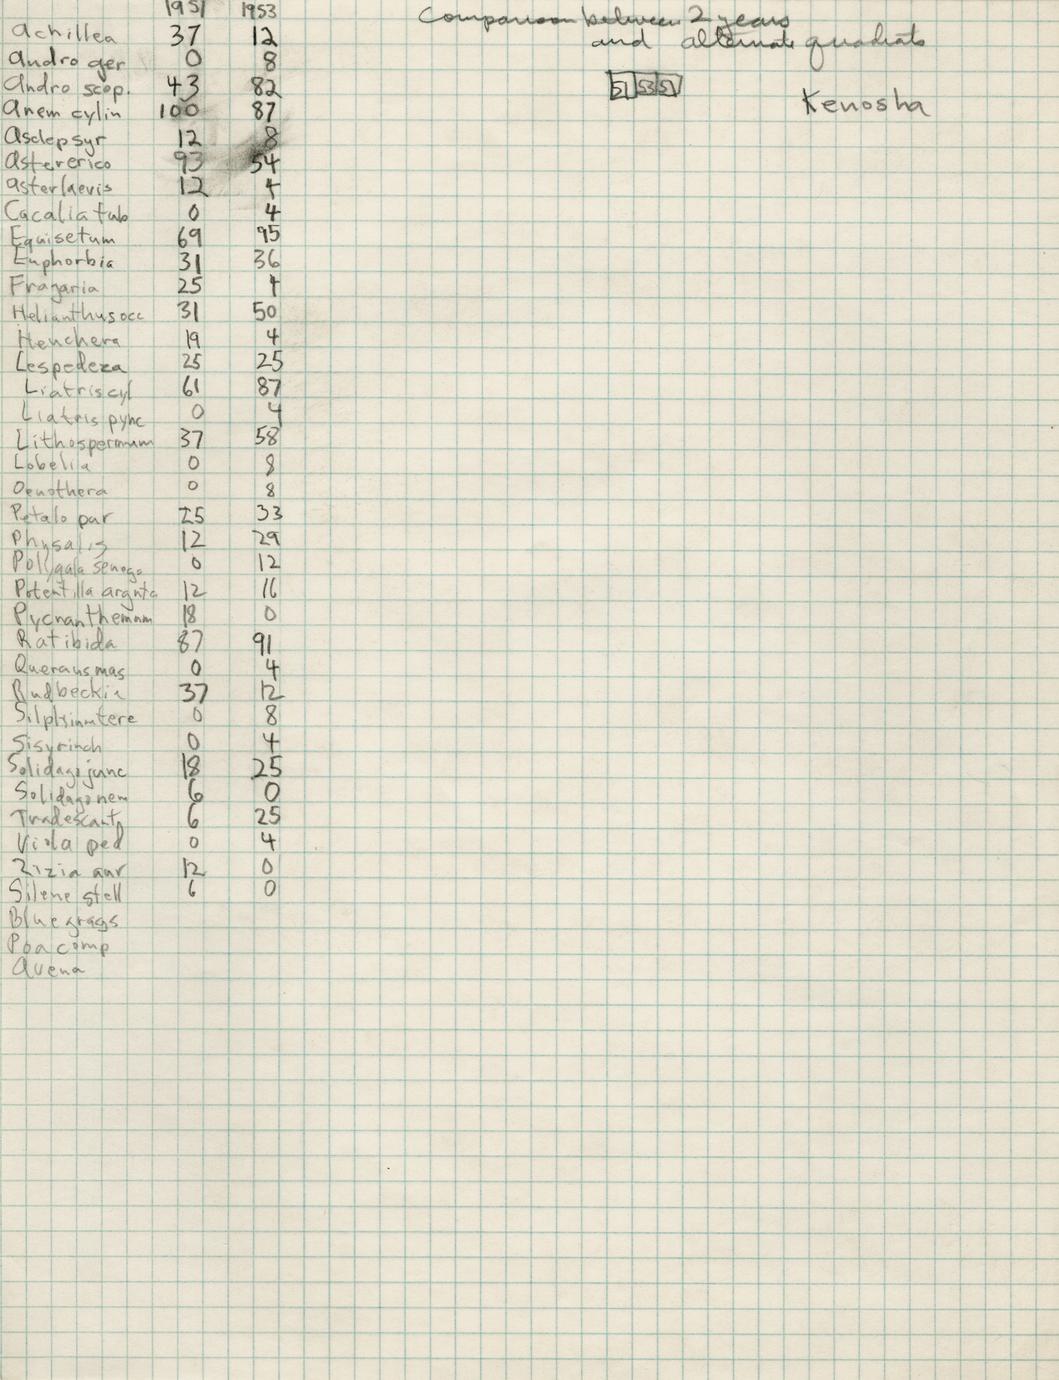 1951 1953
Comparison between 2 years
and alternate quadrats
51 53 51
Kenosha
Achillea 37 12
Andro ger 0 8
Andro scop. 43 82
Anem cylin 100 87
Asclep syr 12 8
Aster erico 93 54
Aster laevis 12 4
Cacalia tub 0 4
Equisetum 69 95
Euphorbia 31 36
Fragaria 25 4
Helianthus occ 31 50
Heuchera 19 4
Lespedeza 25 25
Liatris cyl 61 87
Liatris pync 0 4
Lithospermum 37 58
Lobelia 0 8
Oenothera 0 8
Petalo pur 25 33
Physalis 12 29
Polygala senega 0 12
Potentilla argnta 12 16
Pycnanthemum 18 0
Ratibida 87 91
Quercus mac 0 4
Rudbeckia 37 12
Silphium tere 0 8
Sisyrinch 0 4
Solidago junc 18 25
Solidago nem 6 0
Tradescant 6 25
Viola ped 0 4
Zizia aur 12 0
Silene stell 6 0
Blue grass
Poa comp
Avena